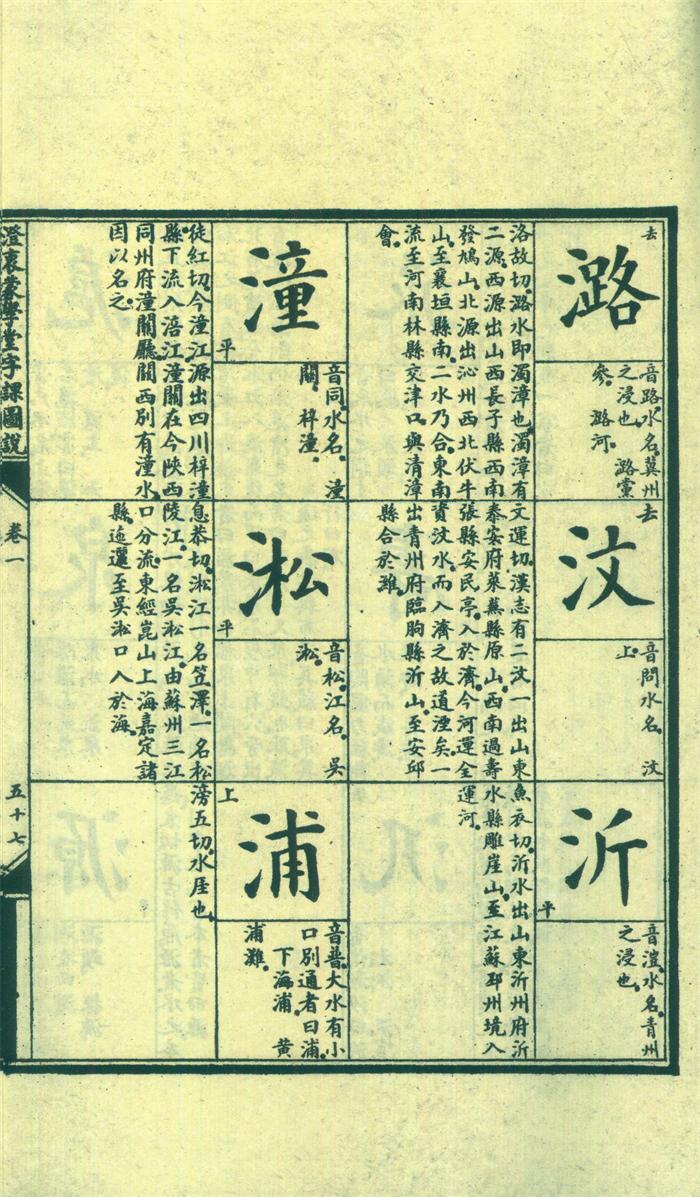 去
潞
音路水名冀州
之浸也 潞黨
參 潞河
洛故切潞水即濁漳也濁漳有
二源西源出山西長子縣西南
發鳩山北源出沁州西北伏牛
山至襄垣縣南二水乃合東南
流至河南林縣交津口與清漳
會
去
汶
音問水名 汶
上
文運切漢志有二汶一出山東
泰安府萊蕪縣原山西南過壽
張縣安民亭入於濟今河運全
資汶水而入濟之故道湮矣一
出青州府臨朐縣沂山至安邱
縣合於濰
沂
平
音澄水名青州
之浸也
魚衣切沂水出山東沂州府沂
水縣雕崖山至江蘇邳州境入
運河
潼
平
音同水名 潼
關 梓潼
徒紅切今潼江源出四川梓潼
縣下流入涪江潼關在今陝西
同州府潼關廳關西別有潼水
因以名之
淞
平
音松江名 吳
淞
息恭切淞江一名笠澤一名松
陵江一名吳淞江由蘇州三江
口分流東經崑山上海嘉定諸
縣迤邐至吳淞口入於海
上
浦
音普大水有小
口別通者曰浦
下海浦 黃
浦灘
滂五切水厓也
澄衷蒙學堂字課圖說
卷一
五十七